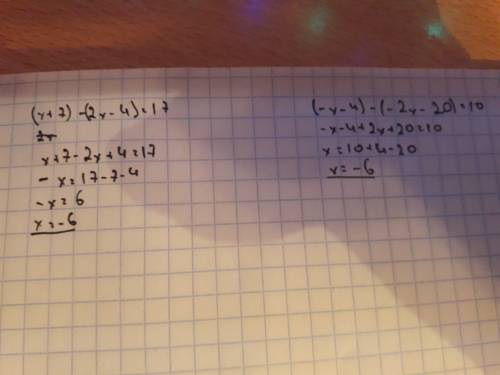 (x+7)-(2x-4)=17
x+7-2x+4=17
-x=17-7-4
-x=6
x=-6
(-x-4)-(-2x-20)=10
-x-4+2x+20=10
x=10+4-20
x=-6